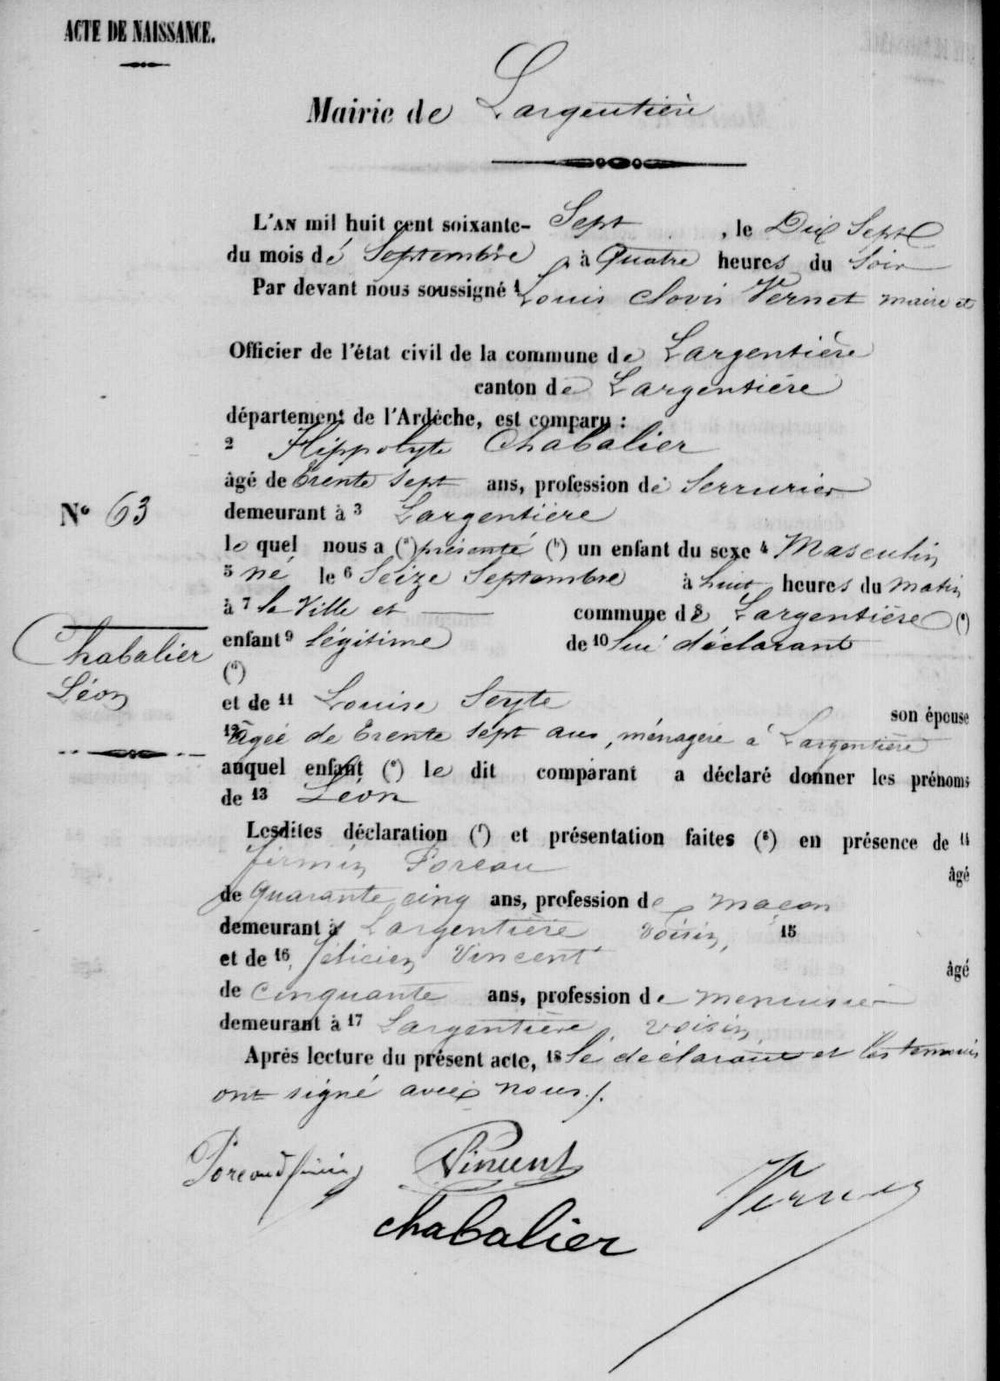 ACTE DE NAISSANCE.
Mairie de Largentière
L'AN mil huit cent soixante- Sept , le Dix Sept
du mois de Septembre à Quatre heures du Soir
Par devant nous soussigné 1 Louis Clovis Vernet maire et
Officier de l'état civil de la commune de Largentière
canton de Largentière
département de l'Ardèche, est comparu :
2 Hippolyte Chabalier
âgé de trente sept ans, profession de Serrurier
N° 63
demeurant à 3 Largentière
le quel nous a (a) présenté (b) un enfant du sexe 4 Masculin
5 né le 6 Seize Septembre à huit heures du matin
à 7 la Ville et commune de 8 Largentière (c)
Chabalier
Léon
enfant 9 légitime de 10 lui déclarant
(d)
et de 11 Louise Seyte
son épouse
12 âgée de trente sept ans, ménagère à Largentière
auquel enfant (e) le dit comparant a déclaré donner les prénoms
de 13 Léon
Lesdites déclaration (f) et présentation faites (g) en présence de 14
firmin Poreau
âgé
de quarante cinq ans, profession de maçon
demeurant à Largentière voisin, 15
et de 16 félicien Vincent
âgé
de cinquante ans, profession de menuisier
demeurant à 17 Largentière, voisin
Après lecture du présent acte, 18 le déclarant et les temoins
ont signé avec nous /.
Vincent
Chabalier
Vernet